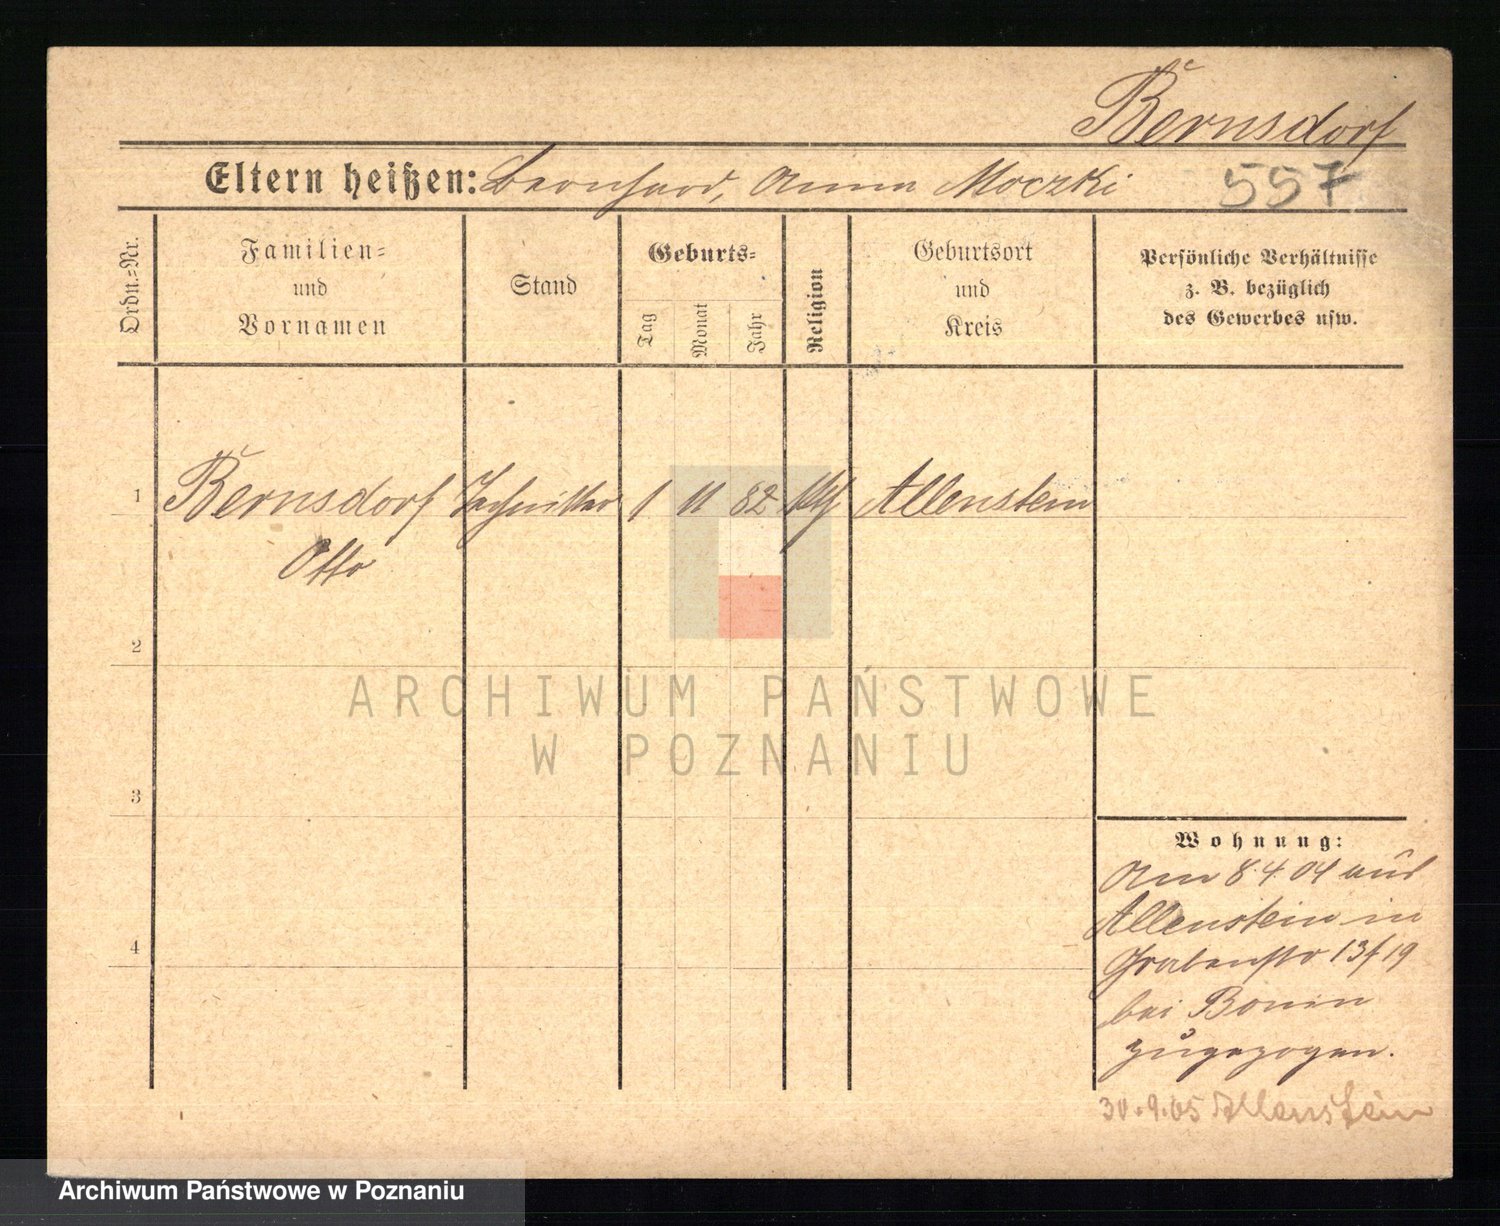 Bernsdorf
Eltern heißen: Bernhard, Anna Moczki
557
Ordn.=Nr.
Familien=
und
Vornamen
Stand
Geburts=
Tag
Monat
Jahr
Religion
Geburtsort
und
Kreis
Persönliche Verhältnisse
z. B. bezüglich
des Gewerbes usw.
1 Bernsdorf Techniker 1 11 82 kth Allenstein
Otto
2
3
4
ARCHIWUM PAŃSTWOWE
W POZNANIU
Wohnung:
Am 8.4.04 aus
Allenstein in
Grabenstr 13/19
bei Bonin
zugezogen.
30.9.05 Allenstein
Archiwum Państwowe w Poznaniu